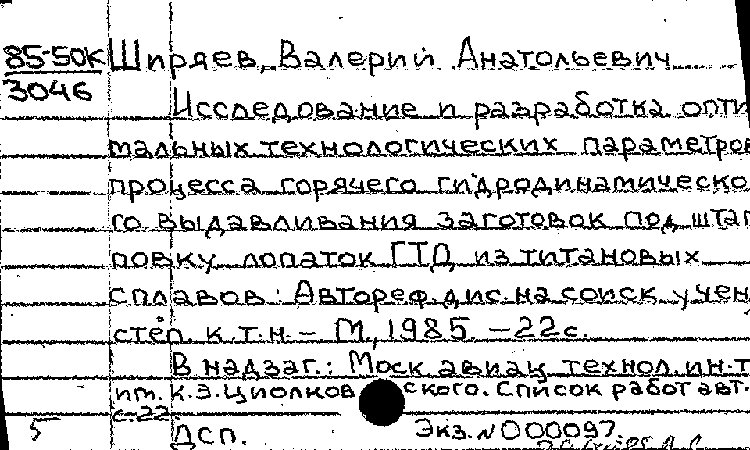 85-50К Ширяев, Валерий Анатольевич
3046
Исследование и разработка опти
мальных технологических параметров
процесса горячего гидродинамическо
го выдавливания заготовок под штам
повку лопаток ГТД из титановых
сплавов: Автореф. дис. на соиск учен
степ. к.т.н. – М, 1985. – 22с.
В надзаг.: Моск авиац технол. ин-т
им. К.Э. Циолковского. Список работ авт.
с.22
5 ДСП. Экз. N000097